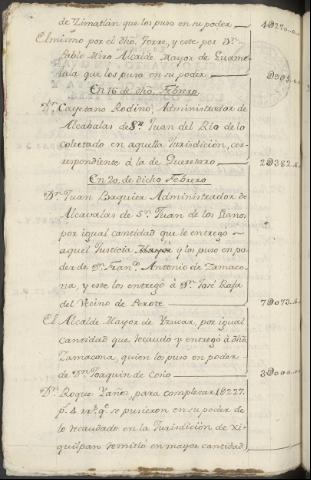 de Zimatlán que los puso en su poder
El mismo por el dho. Torre, y este por Dn.
Pablo Miro Alcalde Mayor de
que los puso en su poder
En 16 de dho. Febrero
Dn. Cayetano Rodino, Administrador de
Alcabalas de Sn. Juan del Rio de lo
colectado en aquella Jurisdicion, cor-
respondiente á la de Queretaro 2D382
En 20 de dicho Febrero
Dn. Juan Baquier Administrador de
Alcavalas de Sn. Juan de los Llanos,
por igual cantidad que le entregó
aquel Justicia Mayor y los puso en po-
der de Dn. Franco. Antonio de Zamaco-
na, y este los entregó á Dn. José Rafa
del Vecino de Perote 7D073
El Alcalde Mayor de Yzucar, por igual
cantidad que recaudo y entregó á dho.
Zamacona, quien los puso en poder
de Dn. Joaquin de Coño 3D000
Dn. Roque Yañes, para completar 18227.
p.s 4 rr.s q.e se pusieron en su poder de
lo recaudado en la Jurisdicion de Xi-
quilpan remitió en mayor cantidad